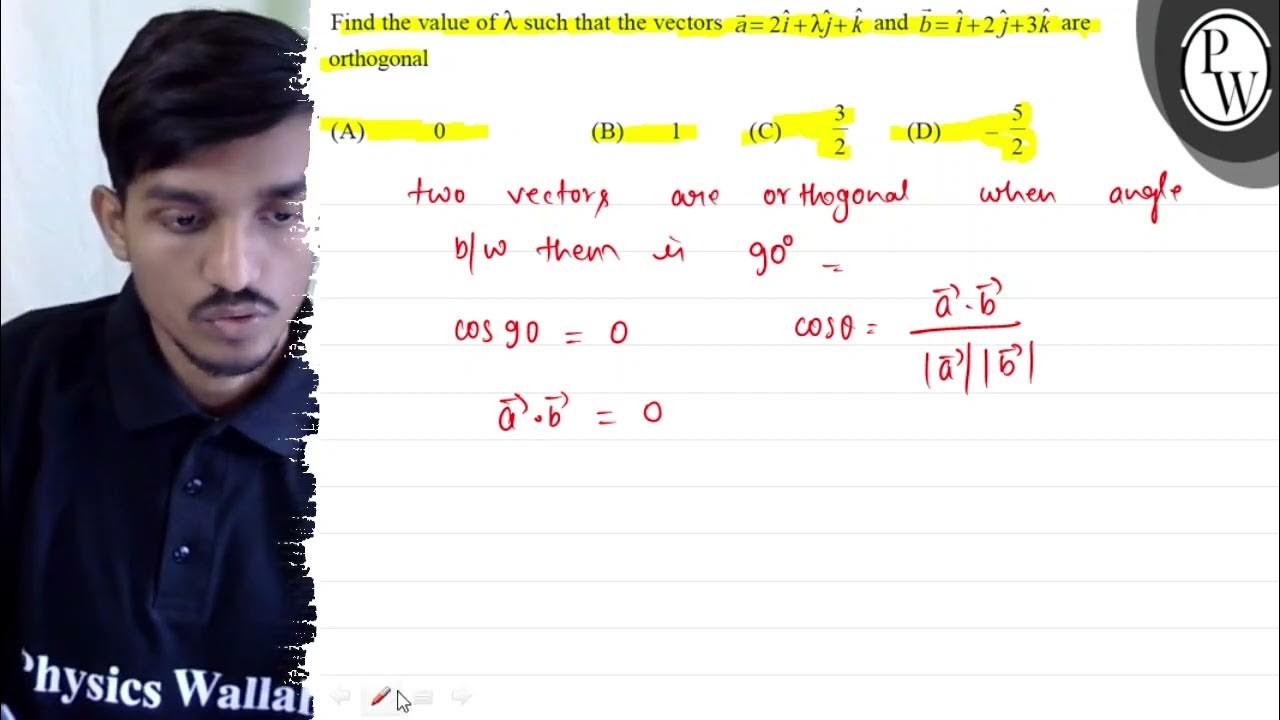 Find the value of λ such that the vectors a⃗ = 2î + λĵ + k̂ and b⃗ = î + 2ĵ + 3k̂ are
orthogonal
(A) 0 (B) 1 (C) 3/2 (D) – 5/2
two vectors are orthogonal when angle
b/w them is 90° =
cos 90 = 0 cosθ = a⃗·b⃗ / |a⃗| |b⃗|
a⃗·b⃗ = 0
PW
Physics Wallah